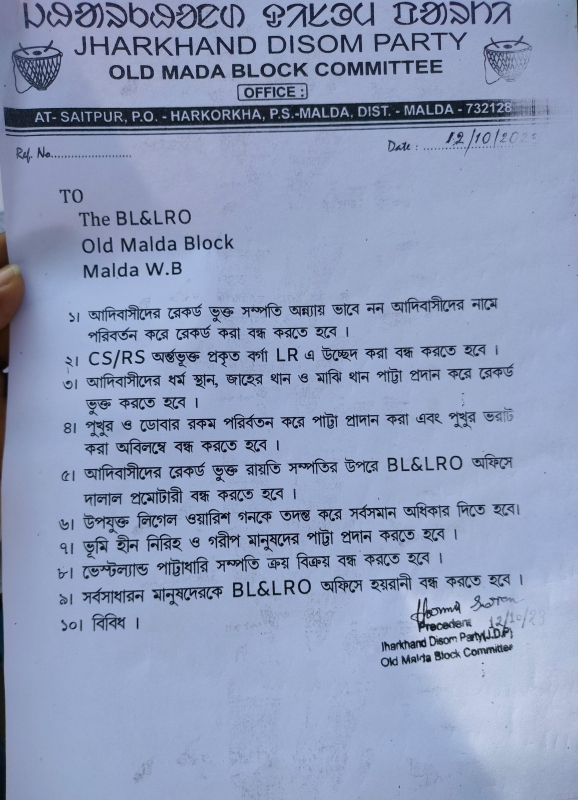 JHARKHAND DISOM PARTY
OLD MADA BLOCK COMMITTEE
OFFICE :
AT- SAITPUR, P.O. - HARKORKHA, P.S.-MALDA, DIST. - MALDA - 732128
Ref. No........................
Date : 12/10/2023
TO
The BL&LRO
Old Malda Block
Malda W.B
১। আদিবাসীদের রেকর্ড ভুক্ত সম্পতি অন্যায় ভাবে নন আদিবাসীদের নামে
পরিবর্তন করে রেকর্ড করা বন্ধ করতে হবে ।
২। CS/RS অর্ন্তভূক্ত প্রকৃত বর্গা LR এ উচ্ছেদ করা বন্ধ করতে হবে ।
৩। আদিবাসীদের ধর্ম স্থান, জাহের থান ও মাঝি থান পাট্টা প্রদান করে রেকর্ড
ভুক্ত করতে হবে ।
৪। পুখুর ও ডোবার রকম পরিবর্তন করে পাট্টা প্রাদান করা এবং পুখুর ভরাট
করা অবিলম্বে বন্ধ করতে হবে ।
৫। আদিবাসীদের রেকর্ড ভুক্ত রায়তি সম্পতির উপরে BL&LRO অফিসে
দালাল প্রমোটারী বন্ধ করতে হবে ।
৬। উপযুক্ত লিগেল ওয়ারিশ গনকে তদন্ত করে সর্বসমান অধিকার দিতে হবে।
৭। ভূমি হীন নিরিহ ও গরীপ মানুষদের পাট্টা প্রদান করতে হবে ।
৮। ভেস্টল্যান্ড পাট্টাধারি সম্পতি ক্রয় বিক্রয় বন্ধ করতে হবে ।
৯। সর্বসাধারন মানুষদেরকে BL&LRO অফিসে হয়রানী বন্ধ করতে হবে ।
১০। বিবিধ ।
Soren
Precedent 12/10/23
Jharkhand Disom Party(J.D.P)
Old Malda Block Committee